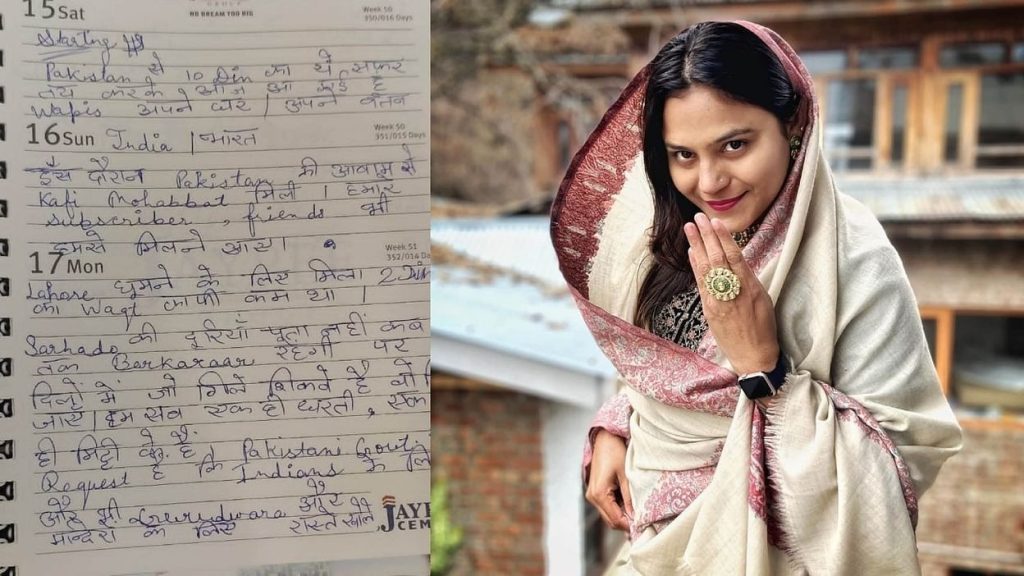 15 Sat
GROUP
NO DREAM TOO BIG
Week 50
350/016 Days
Pakistan से 10 Din का ये सफर
तय करके आज आ गई है
Wapis अपने घर / अपने वतन
16 Sun
India / भारत
Week 50
351/015 Days
इस दौरान Pakistan की आवाम से
Kafi Mohabbat मिली । हमारे
subscriber, friends भी
हमसे मिलने आए।
17 Mon
Week 51
352/014 Da
Lahore घूमने के लिए मिला 2 Din
का Waqt काफी कम था ।
Sarhado की दूरियाँ पता नहीं कब
तक Barkaraar रहेगी पर
दिलों में जो गिले शिकवे है वो
जाएं । हम सब एक ही धरती, एक
ही मिट्टी के है Pakistani Govt
Request है कि Indians के लि
और भी Gurudwara और
मन्दिरों के लिए रास्ते खोले
JAYP
CEM